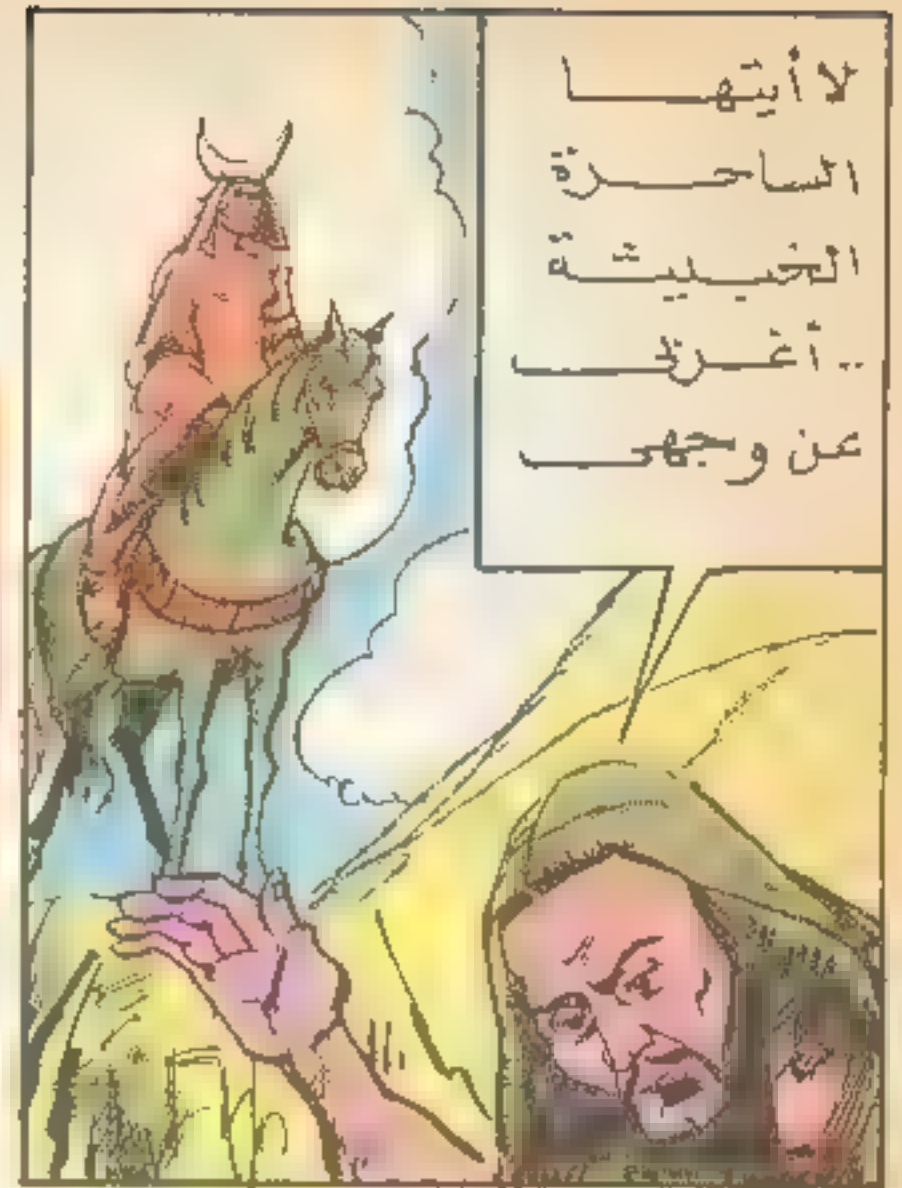 لا أيتها
الساحرة
الخبيثة
.. أغربى
عن وجهى